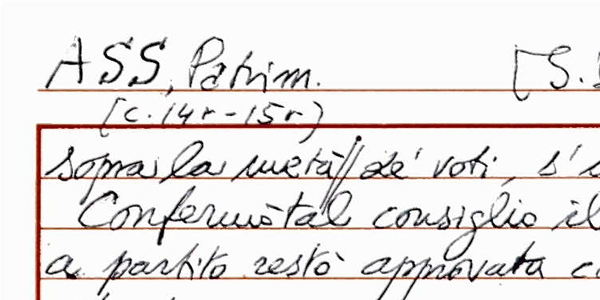 ASS, Patrim. [S.
[c. 14r-15r]
sopra la metà // de' voti, s'
Confermòtal consiglio il
a partito restò approvata